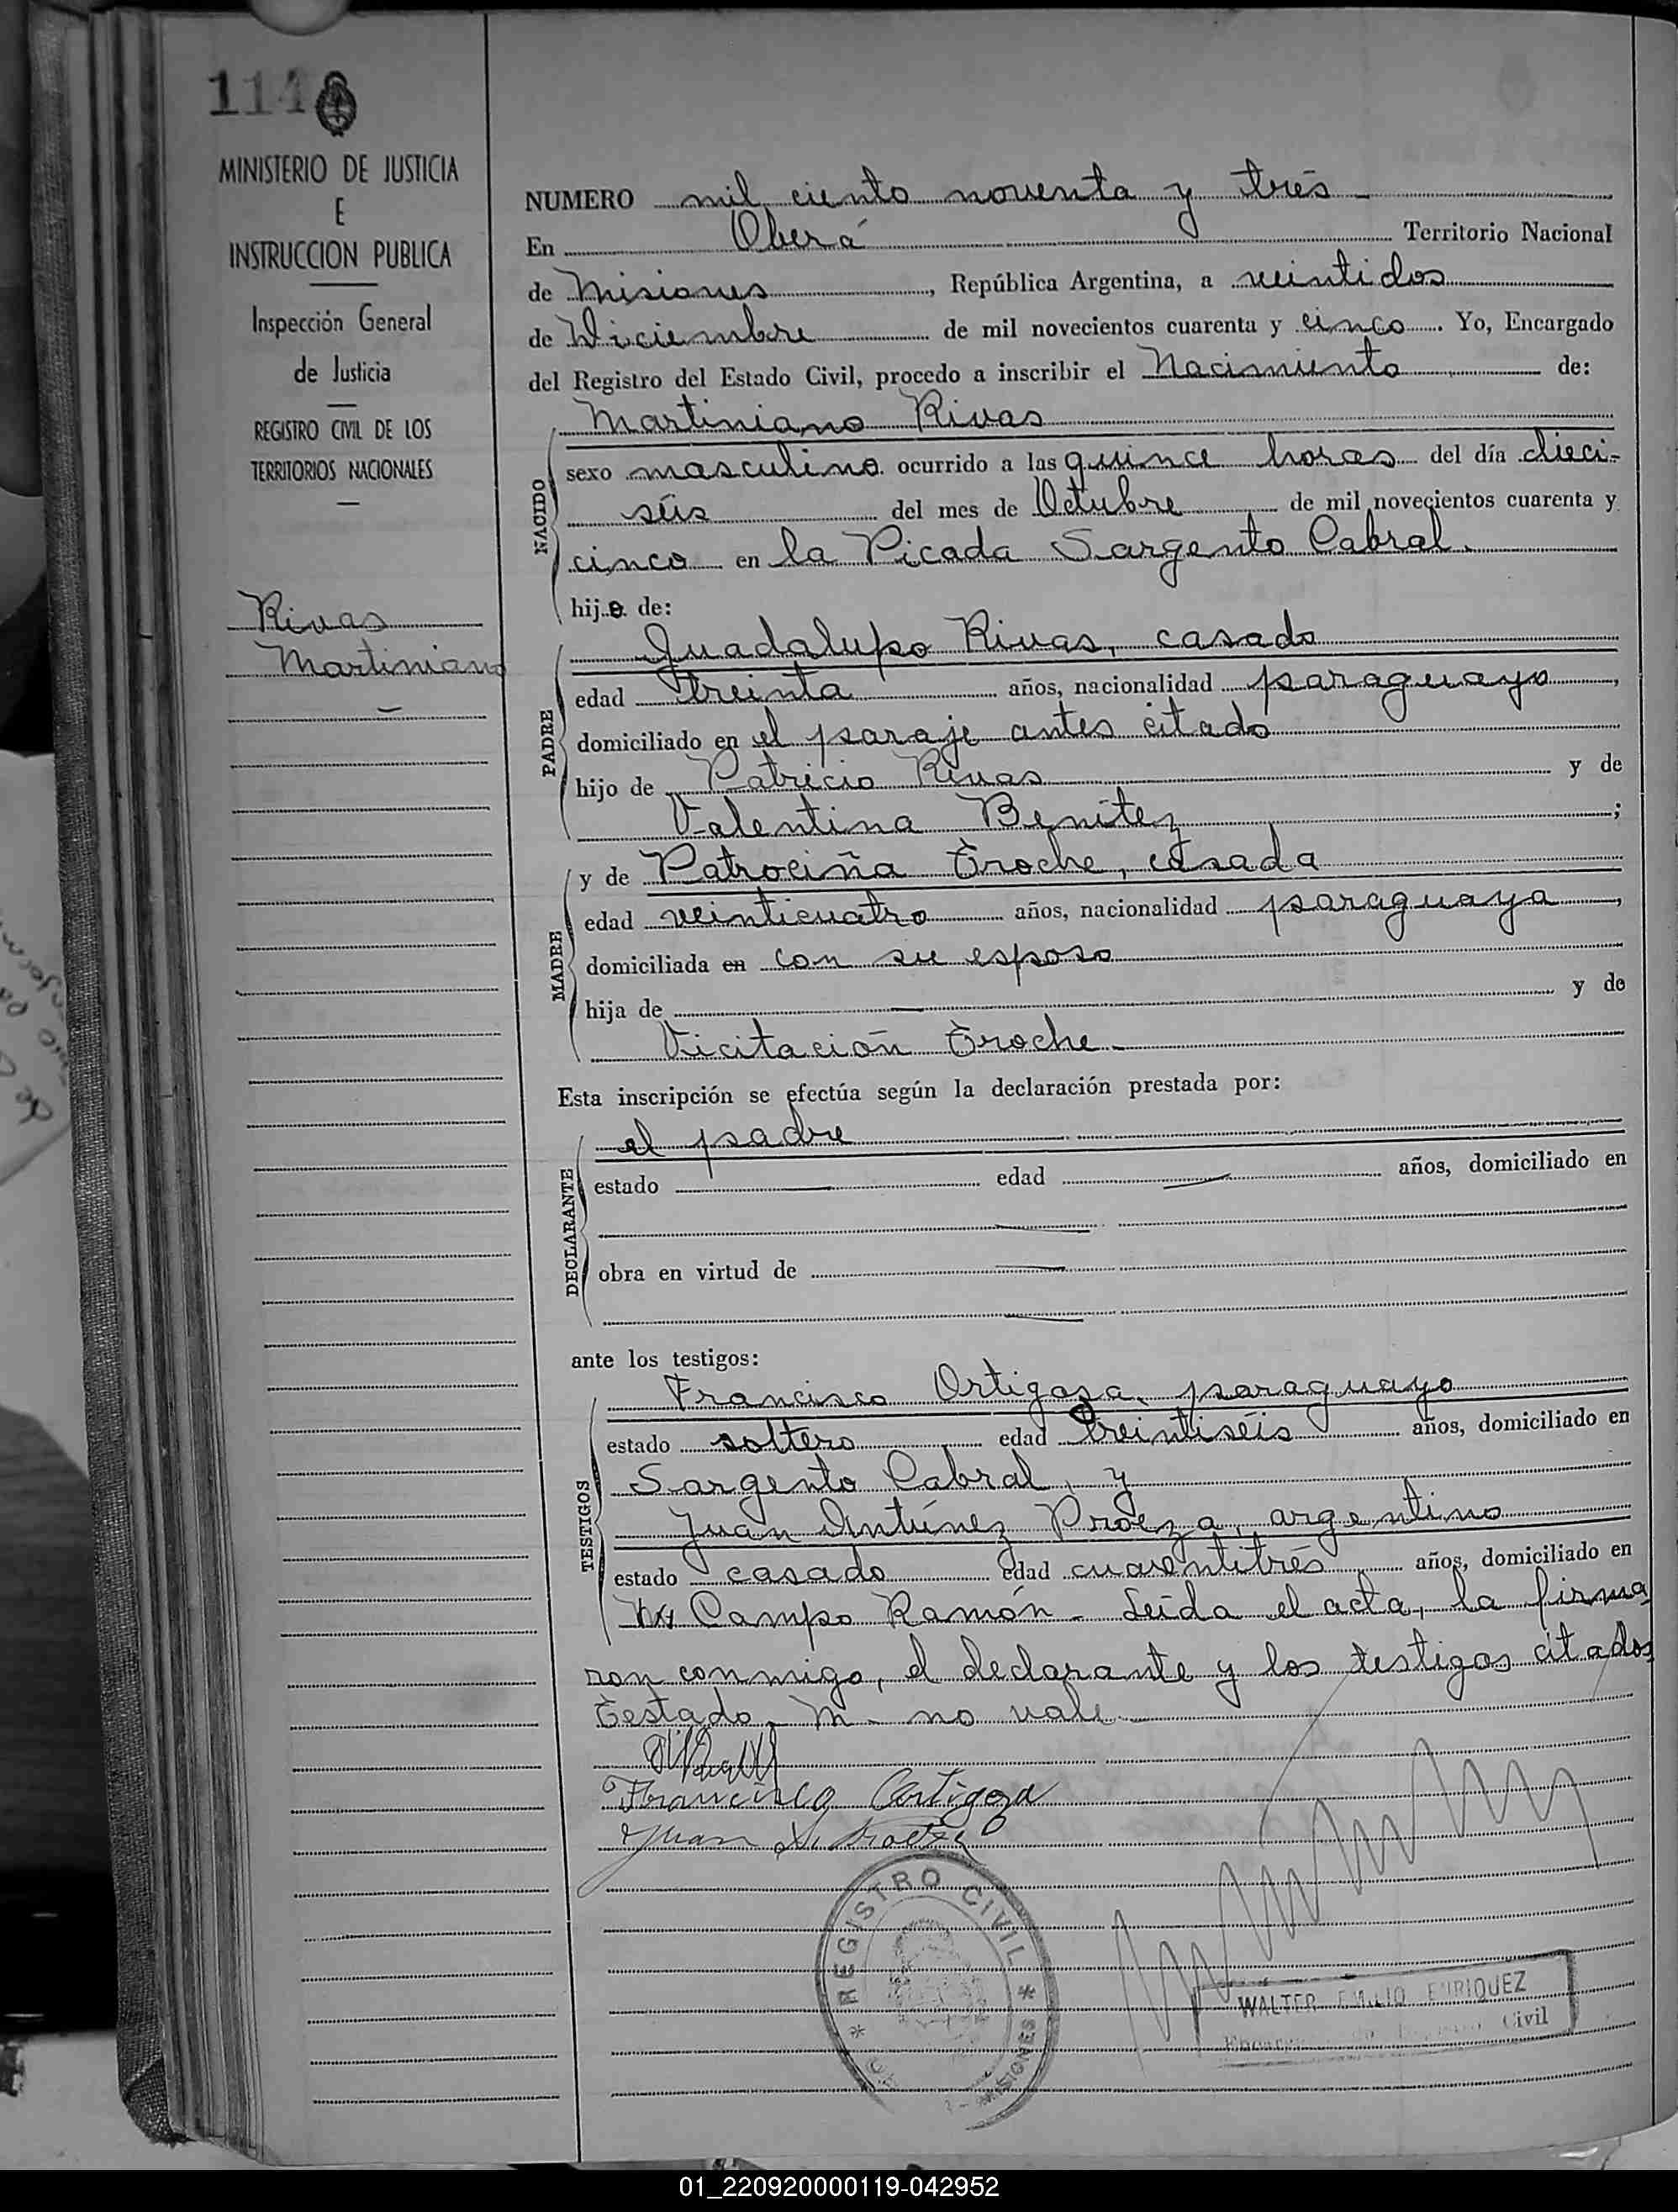 MINISTERIO DE JUSTICIA
E
INSTRUCCION PUBLICA
Inspección General
de Justicia
REGISTRO CIVIL DE LOS
TERRITORIOS NACIONALES
Rivas
Martiniano
NUMERO mil ciento noventa y trés
En Oberá Territorio Nacional
de Misiones, República Argentina, a veintidos
de Diciembre de mil novecientos cuarenta y cinco. Yo, Encargado
del Registro del Estado Civil, procedo a inscribir el Nacimiento de:
NACIDO
Martiniano Rivas
sexo masculino ocurrido a las quince horas del día dieci-
séis del mes de Octubre de mil novecientos cuarenta y
cinco en la Picada Sargento Cabral.
hijo de:
PADRE
Guadalupo Rivas, casado
edad treinta años, nacionalidad paraguayo,
domiciliado en el paraje antes citado
hijo de Patricio Rivas y de
Valentina Benítez;
MADRE
y de Patrociña Troche, casada
edad veinticuatro años, nacionalidad paraguaya,
domiciliada en con su esposo
hija de — y de
Vicitación Troche -
Esta inscripción se efectúa según la declaración prestada por:
DECLARANTE
el padre
estado — edad — años, domiciliado en
obra en virtud de —
ante los testigos:
TESTIGOS
Francisco Ortigoza, paraguayo
estado soltero edad treintiséis años, domiciliado en
Sargento Cabral, y
Juan Antúnez Proeza, argentino
estado casado edad cuarentitrés años, domiciliado en
Campo Ramón - Leída el acta, la firma
ron conmigo, el declarante y los testigos citados
Testado - M - no vale -
Francisco Ortigoza
Juan A. Proeza
REGISTRO CIVIL
MISIONES
WALTER EMILIO ENRIQUEZ
Civil
01_220920000119-042952